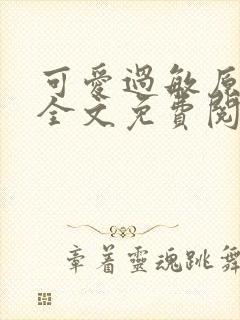 可愛過敏原
全文免費閱
章着靈魂跳舞